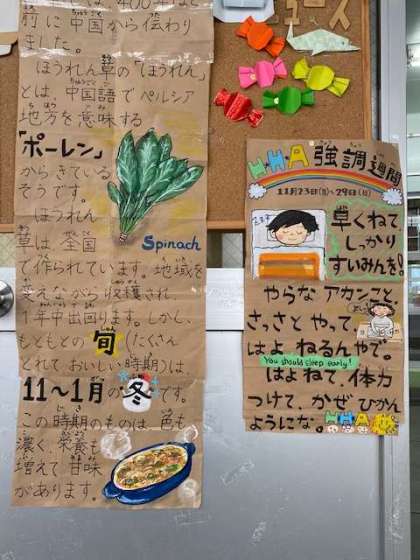 前に中国から伝わり
ました。
ほうれん草の「ほうれん」
とは、中国語でペルシア
地方を意味する
「ポーレン」
からきている
そうです。
ほうれん
草は全国
で作られています。地域を
変えながら収穫され、
1年中出回ります。しかし、
もともとの旬(たくさん
とれておいしい時期)は、
11〜1月の冬です。
この時期のものは、色も
濃く、栄養も
増えて甘味
があります。
Spinach
ュース
H・H・A 強調週間
11月23日(月)〜29日(日)
早くねて、
しっかり
すいみんを!
やらなアカンこと、
さっさとやって、
はよねるんやで。
You should sleep early!
はよねて、体力
つけて、かぜひかん
ようにな。